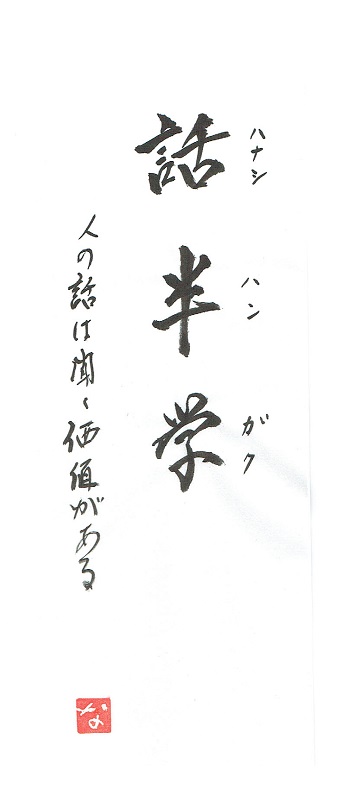 ハナシ ハン ガク
話半学
人の話は聞く価値がある